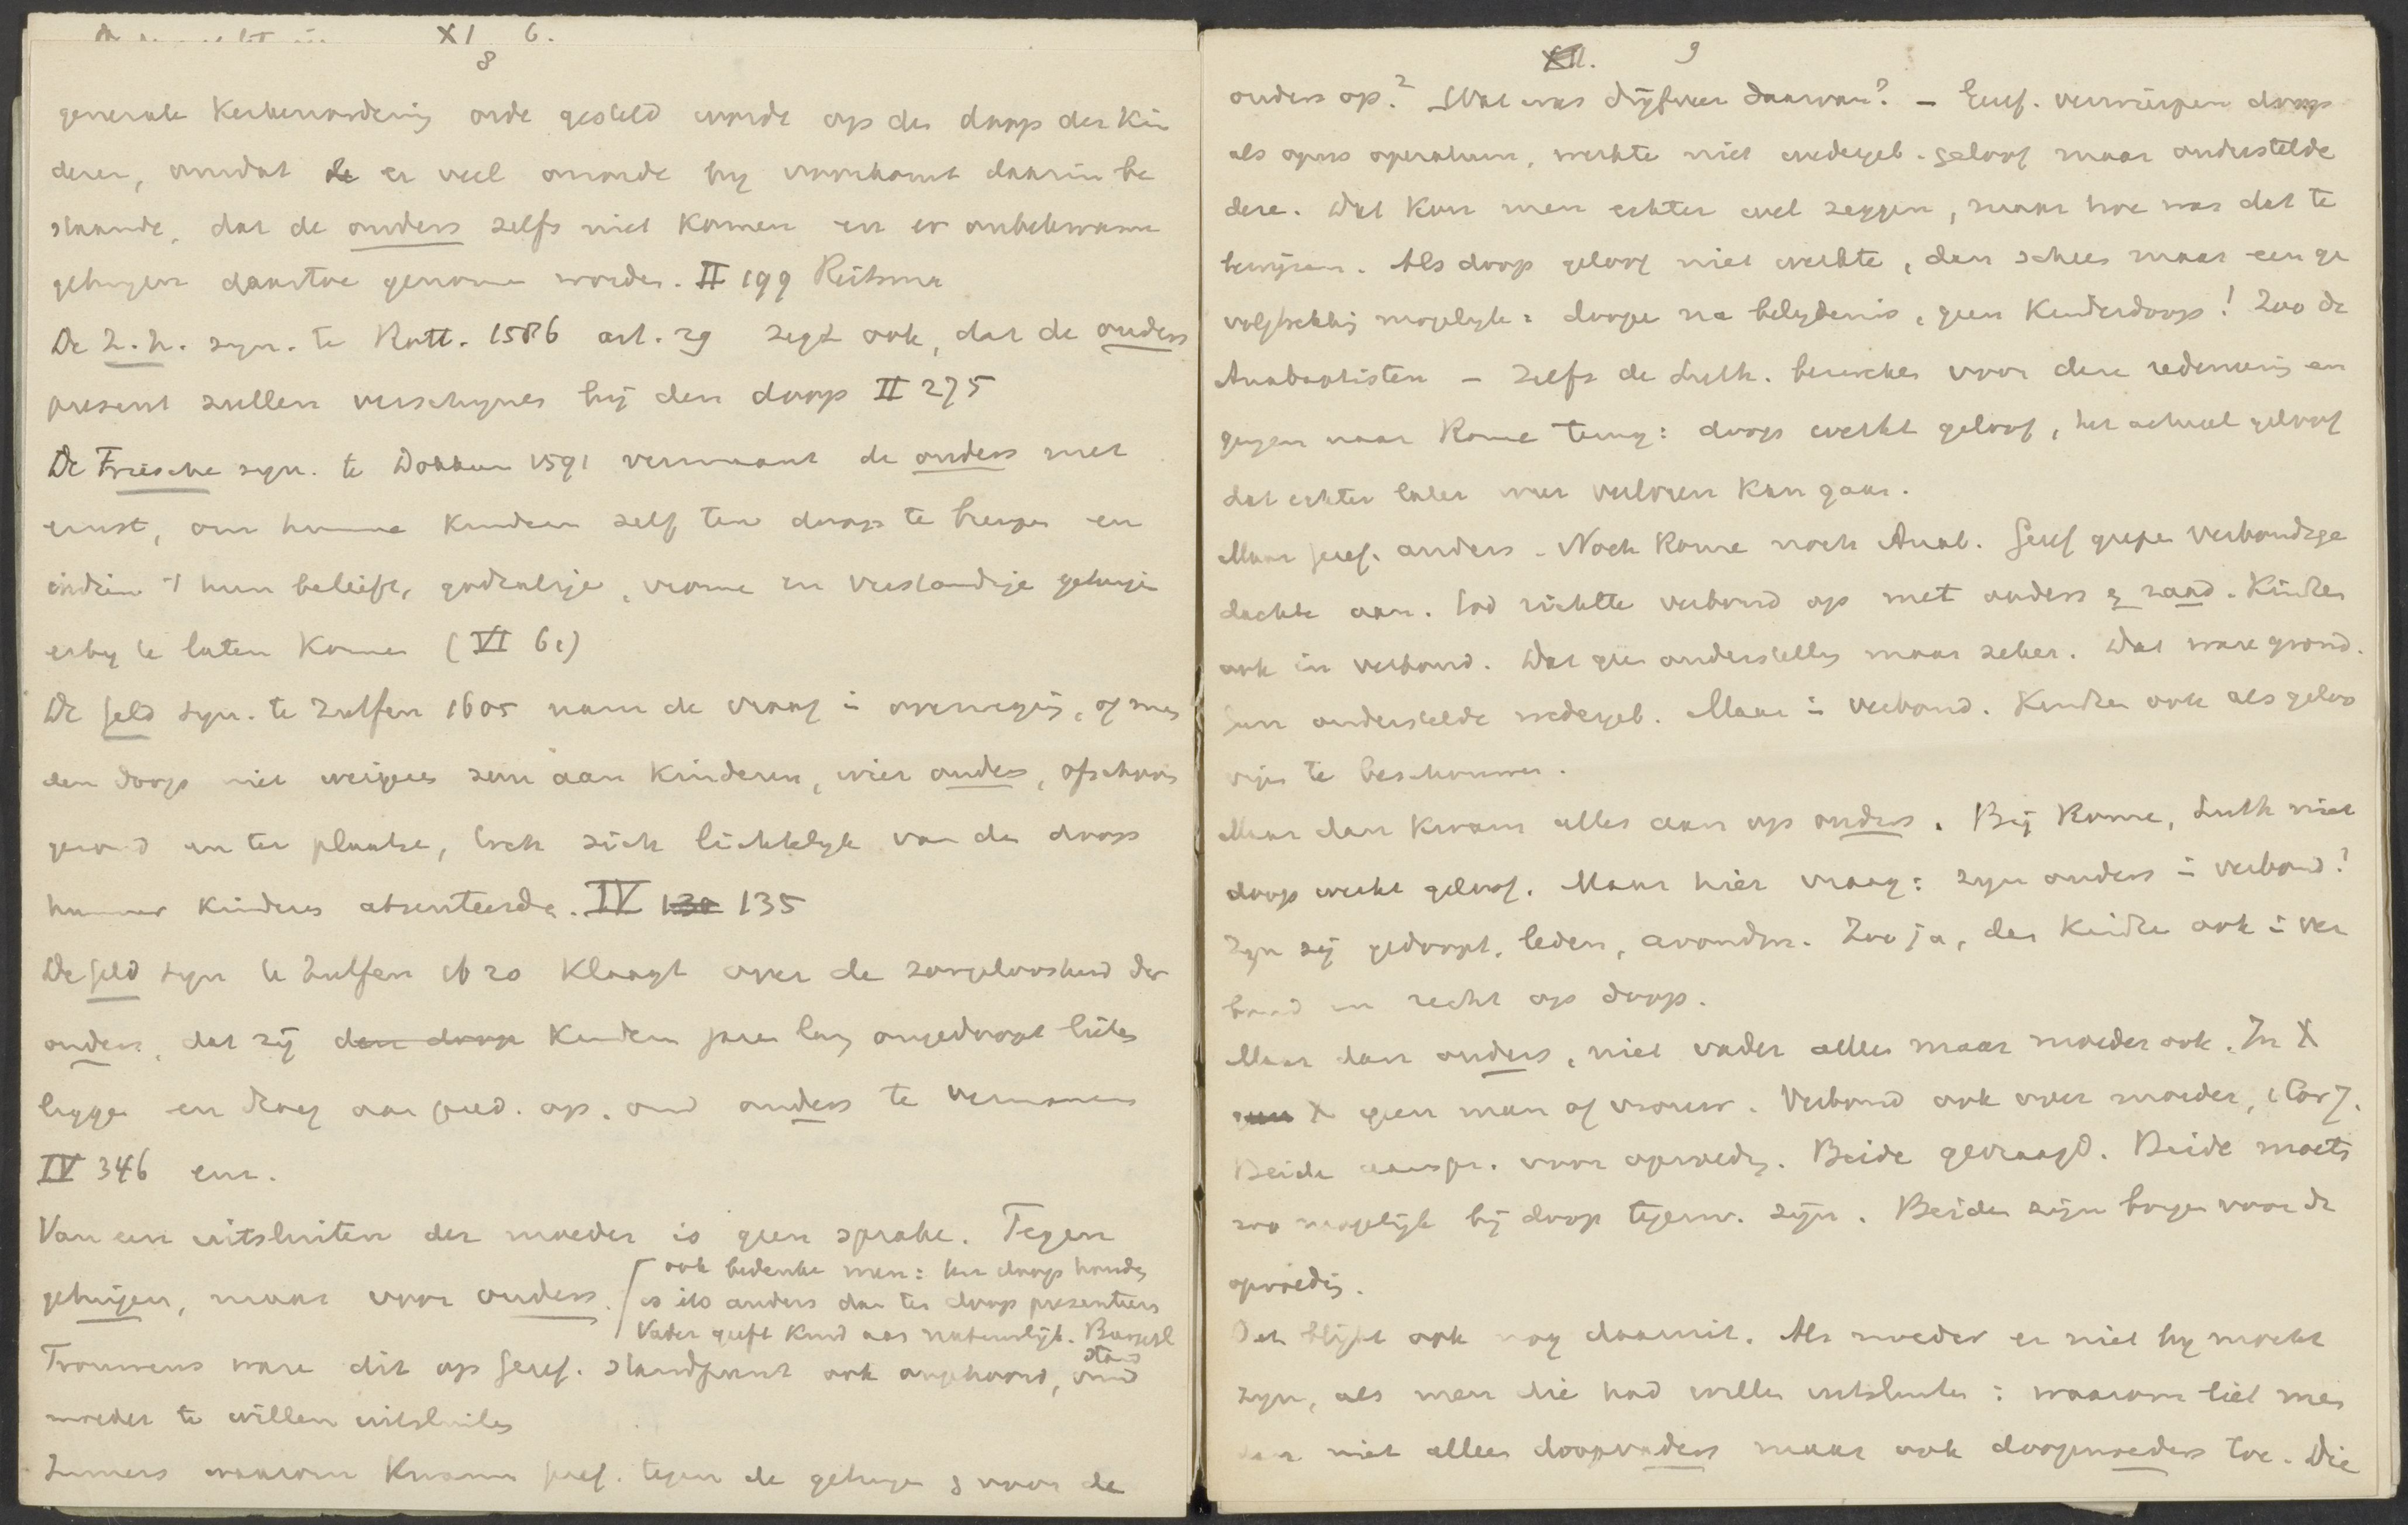 XI 6.
8
generale Kerkenordening orde gesteld worde op den doop der Kin
deren, omdat er veel onorde by voorkomt daarin be
staande, dat de ouders zelfs niet komen en er onbekwame
getuigen daartoe genomen worden. II 199 Reitsma
De Z.H. syn. te Rott. 1586 art. 29 zegt ook, dat de ouders
present zullen verschynen bij den doop II 275
De Friesche syn. te Dokkum 1591 vermaant de ouders met
ernst, om hunne kinderen zelf ten doop te brengen en
indien 't hun belieft, godzalige, vrome en verstandige getuigen
erby te laten komen (VI 61)
De Geld syn. te Zutfen 1605 nam de vraag in overweging, of men
den doop niet weigeren zou aan kinderen, wier ouders, ofschoon
gezond en ter plaatse, toch zich lichtelyk van den doop
hunner kinderen absenteerden. IV 130 135
De Geld syn te Zutfen 1620 klaagt over de zorgeloosheid der
ouders, dat zij den doop kinderen jaren lang ongedoopt lieten
liggen en droeg aan pred. op, om ouders te vermanen
IV 346 enz.
Van een uitsluiten der moeder is geen sprake. Tegen
getuigen, maar voor ouders.
ook bedenke men: ten doop houden
is iets anders dan ten doop presenteeren
Vader geeft kind aan natuurlijk. Burgerl
stand
Trouwens ware dit op Geref. standpunt ook ongehoord, om
moeder te willen uitsluiten
Immers waarom kwam Geref. tegen de getuigen & voor de
XII. 9
ouders op? Wat was drijfveer daarvan? - Geref. verwierpen doop
als opus operatum, werkte niet wedergeb. geloof maar onderstelde
deze. Dat kon men echter wel zeggen, maar hoe was dat te
bewijzen. Als doop geloof niet werkte, dan scheen maar een ge
volgtrekking mogelyk: doopen na belydenis, geen Kinderdoop! Zoo de
Anabaptisten - Zelfs de Luth. bezweken voor deze redeneering en
gingen naar Rome terug: doop werkt geloof, het actueel geloof
dat echter later weer verloren kan gaan.
Maar Geref. anders. Noch Rome noch Anab. Geref grepen Verbondsge
dachte aan. God richtte verbond op met ouders & zaad. Kinderen
ook in verbond. Dat geen onderstelling maar zeker. Dat ware grond.
Geen onderstelde wedergeb. Maar in Verbond. Kinderen ook als geloo
vigen te beschouwen.
Maar dan kwam alles aan op ouders. Bij Rome, Luth niet
doop werkt geloof. Maar hier vraag: zyn ouders in verbond?
Zyn zij gedoopt, leden, avondm. Zoo ja, dan Kindren ook in ver
bond en recht op doop.
Maar dan ouders, niet vader alleen maar moeder ook. In X
X geen man of vrouw. Verbond ook over moeder, 1 Cor 7.
Beide aanspr. voor opvoeding. Beide gevraagd. Beide moeten
zoo mogelijk bij doop tegenw. zijn. Beiden zijn borgen voor de
opvoeding.
Dat blijkt ook nog daaruit. Als moeder er niet by mocht
zyn, als men die had willen uitsluiten: waarom liet men
dan niet alleen doopvaders maar ook doopmoeders toe. Die